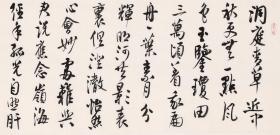 洞庭青草近中
秋更無一點風
色玉鑒瓊田
三萬頃著我扁
舟一葉素月分
輝明河共影表
裏俱澄澈怡然
心會妙處難與
君說應念嶺海
經年孤光自照肝